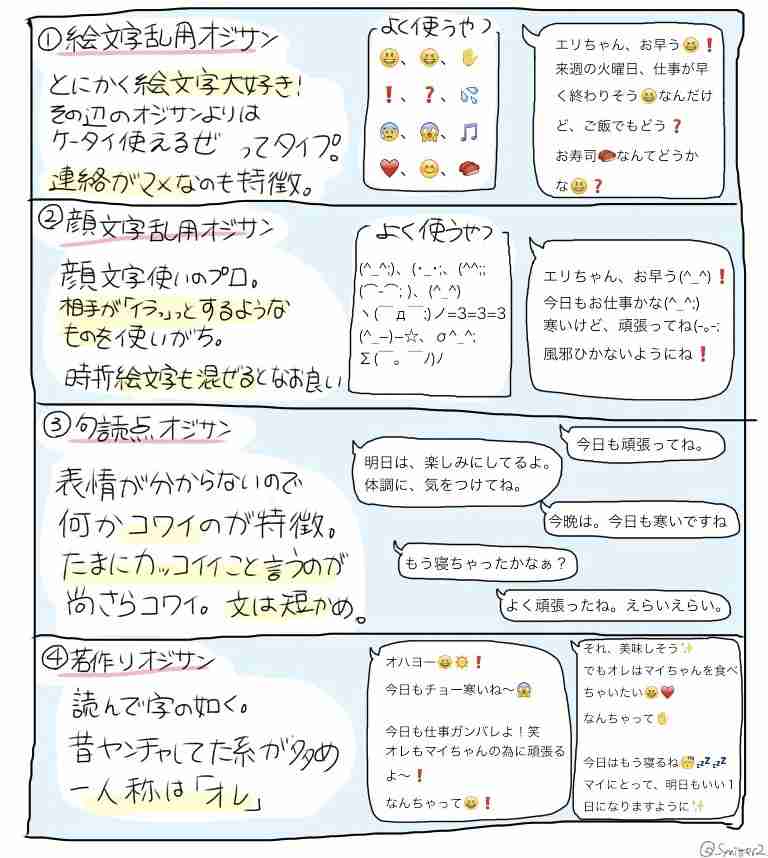 ①絵文字乱用オジサン
とにかく絵文字大好き!
その辺のオジサンよりは
ケータイ使えるぜ ってタイプ。
連絡がマメなのも特徴。
よく使うやつ
😀、😄、✋
❗、❓、💦
😰、😱、🎵
❤️、😊、🍣
エリちゃん、お早う😄❗
来週の火曜日、仕事が早
く終わりそう😀なんだけ
ど、ご飯でもどう❓
お寿司🍣なんてどうか
な😀❓
②顔文字乱用オジサン
顔文字使いのプロ。
相手が「イラっ」っとするような
ものを使いがち。
時折絵文字も混ぜるとなお良い
よく使うやつ
(^_^;)、(・_・;、(^^;;
(⌒-⌒; )、(^_^)
ヽ(￣д￣;)ノ=3=3=3
(^_−)−☆、σ^_^;
Σ(￣。￣ﾉ)ﾉ
エリちゃん、お早う(^_^)❗
今日もお仕事かな(^_^;)
寒いけど、頑張ってね(-｡-;
風邪ひかないようにね❗
③句読点オジサン
表情が分からないので
何かコワイのが特徴。
たまにカッコイイこと言うのが
尚さらコワイ。文は短かめ。
今日も頑張ってね。
明日は、楽しみにしてるよ。
体調に、気をつけてね。
今晩は。今日も寒いですね
もう寝ちゃったかなぁ？
よく頑張ったね。えらいえらい。
④若作りオジサン
読んで字の如く。
昔ヤンチャしてた系が多め
一人称は「オレ」
オハヨー😄☀️❗
今日もチョー寒いね〜😱
今日も仕事ガンバレよ！笑
オレもマイちゃんの為に頑張る
よ〜❗
なんちゃって😄❗
それ、美味しそう✨
でもオレはマイちゃんを食べ
ちゃいたい😄❤️
なんちゃって✋
今日はもう寝るね😴💤💤
マイにとって、明日もいい１
日になりますように✨